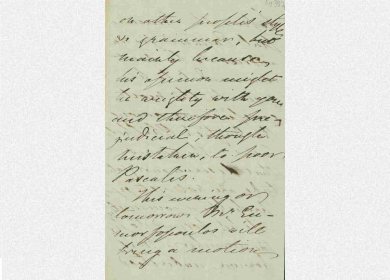 on other people's style
or grammar, but
mainly because
his opinion might
be weighty with you
and therefore pre-
judicial, though
mistaken, to poor
Pascalis.
This evening or
tomorrow Mr. Eu-
morfopoulos will
bring a motion